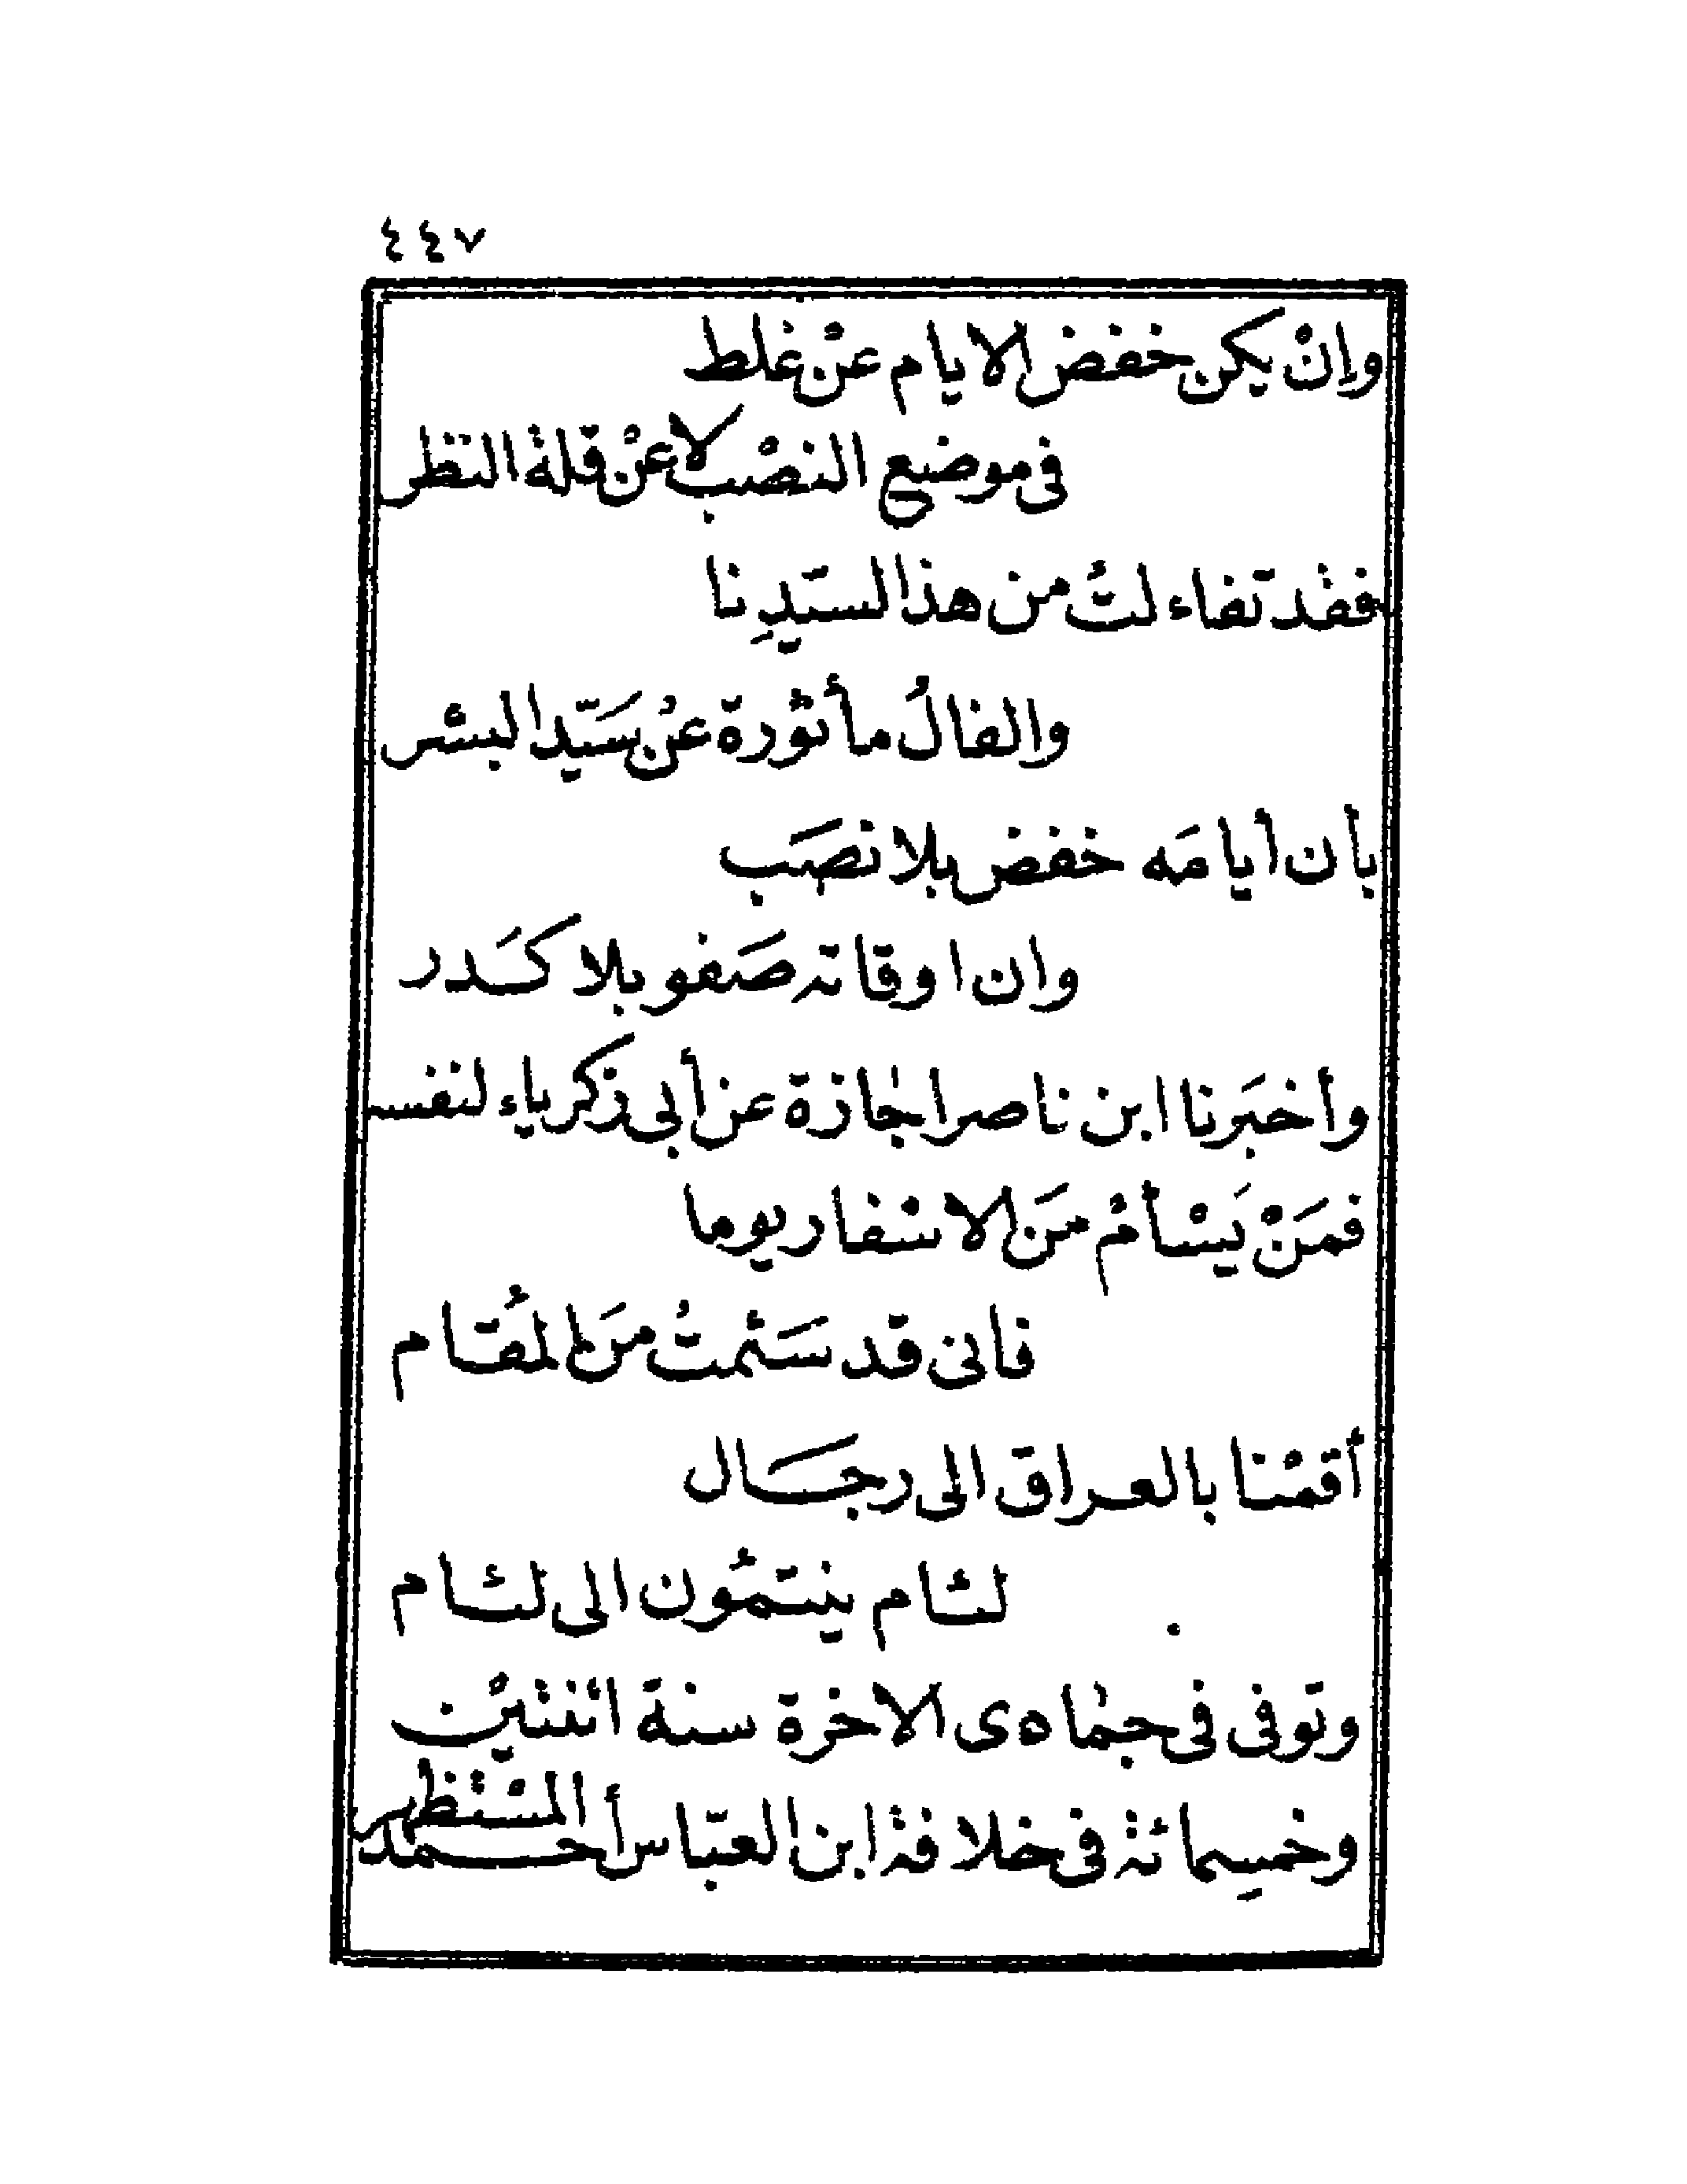 ٤٤٧
وإنْ يكن خفض الايام عنْ غلط
فى موضع النصْب لا عنْ قلة النظر
فقد تفاء لتُ من هذا لسيّدِ نا
والفالُ مأثورة عنْ سَيّد البشر
بأن أيامَه خفض بلا نصَب
وان اوقاته صَفو بلا كَدر
وأخبَرنا ابن ناصر اجازة عن أبى زكرياء لنفسه
فمَنْ يَسْأمْ مَن لا سْفار يوما
فانى قد سَئمتُ مَن المُقام
أقمْنا بالعراق الى رجَال
لئام ينتمُون الى لئام
وتوفى فى جمادى الاخرة سنة اثنتيْن
وخمسِمائة فى خلافة ابن العبّاس أحمد المسْتظهر